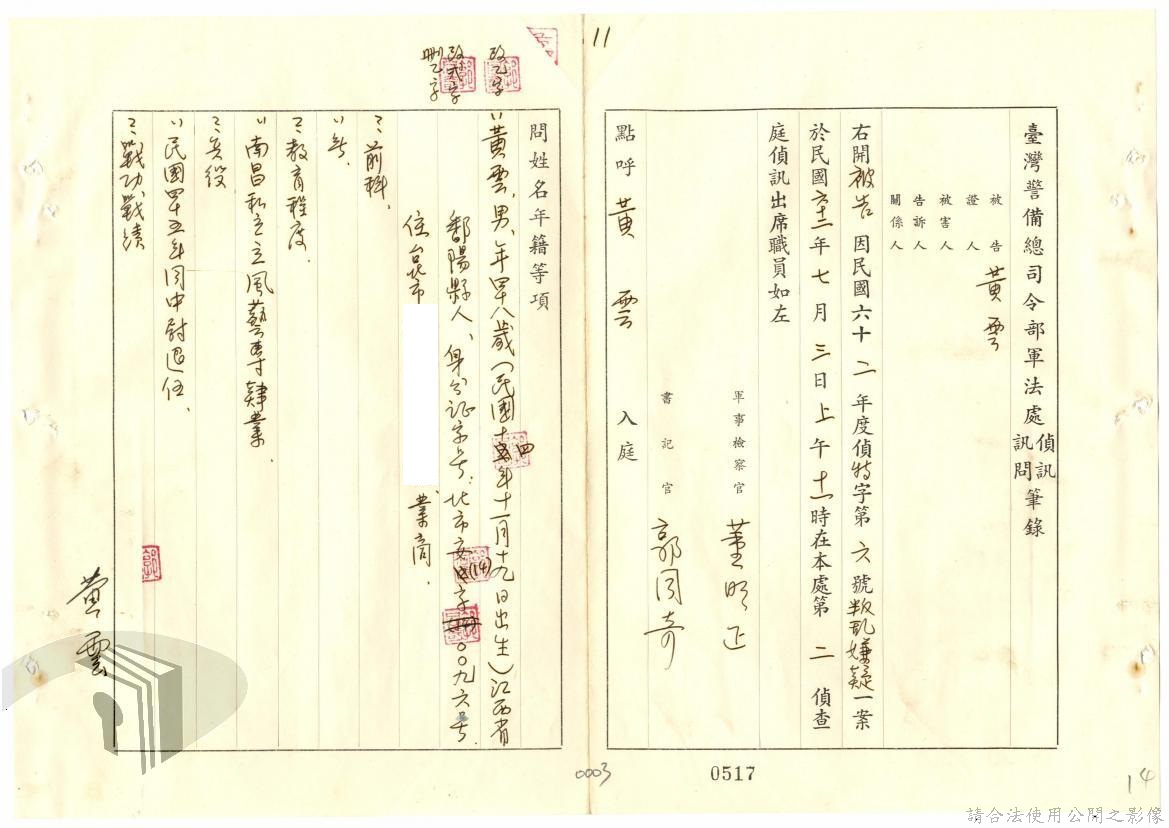 11
臺灣警備總司令部軍法處偵訊訊問筆錄
被告
證人
被害人
告訴人
關係人
黃雲
右開被告因民國六十二年度偵特字第六號叛亂嫌疑一案
於民國六十二年七月三日上午十一時在本處第二偵查
庭偵訊出席職員如左
軍事檢察官 董明正
書記官 郭同奇
點呼 黃雲 入庭
0517
14
問姓名年籍等項
改乙字
黃雲、男、年四十八歲(民國十四年十一月十九日出生)江西省
改弍字
刪乙字
鄱陽縣人、身分證字号:北市安(14)字〇〇九六号、
住台北市 業商、
前科、
無、
教育程度、
南昌私立立風藝專肄業、
兵役
民國四十五年 中尉退伍、
戰功、戰績
黃雲
0003
請合法使用公開之影像